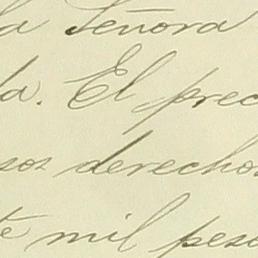 la Señora
da. El prec
sos derechos
te mil peso